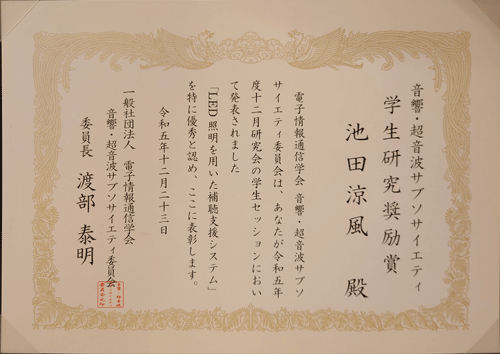 音響・超音波サブソサイエティ
学生研究奨励賞
池田涼風 殿
電子情報通信学会 音響・超音波サブソ
サイエティ委員会は、あなたが令和五年
度十二月研究会の学生セッションにおい
て発表されました
「LED照明を用いた補聴支援システム」
を特に優秀と認め、ここに表彰します。
令和五年十二月二十三日
一般社団法人 電子情報通信学会
音響・超音波サブソサイエティ委員会
委員長 渡部 泰明